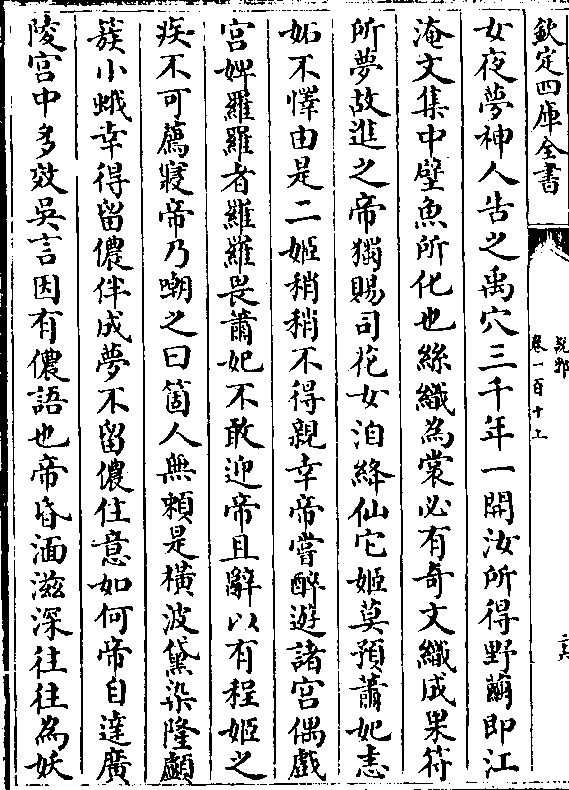 欽定四庫全書
說郛
卷一百十上
女夜夢神人告之禹穴三千年一開汝所得野繭即江
淹文集中壁魚所化也絲織為裳必有奇文織成果符
所夢故進之帝獨賜司花女洎絳仙它姬莫預蕭妃恚
妬不懌由是二姬稍稍不得親幸帝嘗醉遊諸宮偶戲
宮婢羅羅者羅羅畏蕭妃不敢迎帝且辭以有程姬之
疾不可薦寢帝乃嘲之曰箇人無賴是橫波黛染隆顱
簇小蛾幸得留儂伴成夢不留儂住意如何帝自達廣
陵宮中多效吳言因有儂語也帝昏湎滋深往往為妖